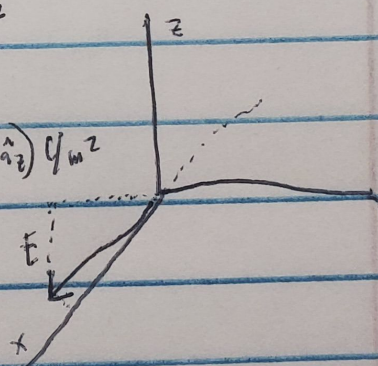 z
â_z) C/m²
E
x